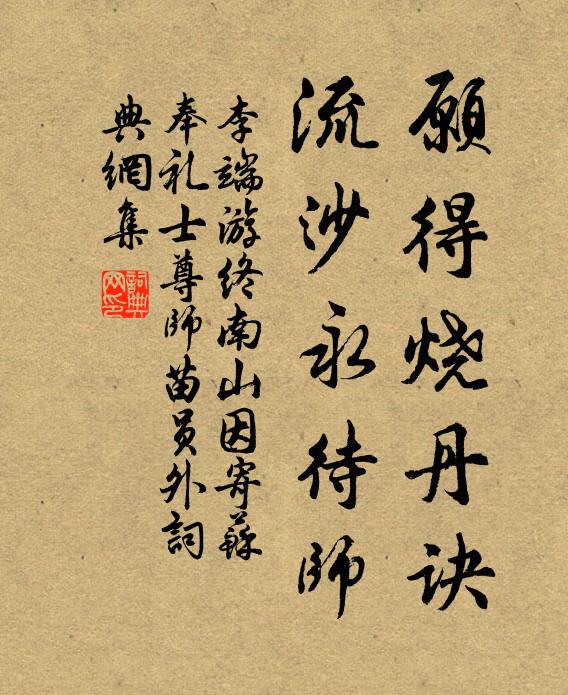 願得烧丹诀
流沙永待師
李端游终南山因寄蘇
奉礼士尊師苗員外詞
典網集
詞典网印